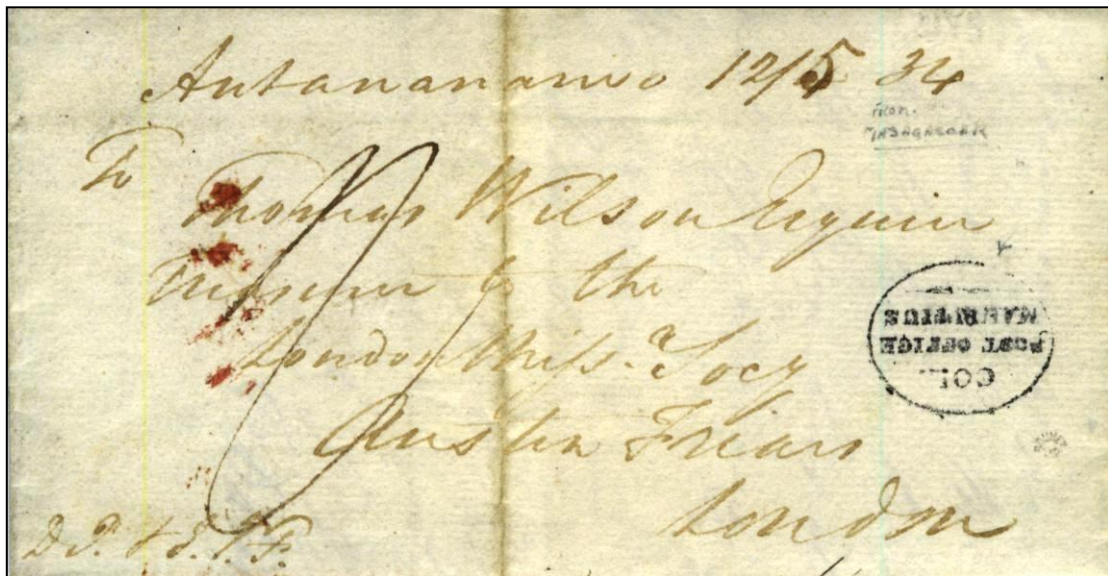 Antananarivo 12/5 34
From
Madagascar
To
Thomas Wilson Esquire
Treasurer to the
London Miss.y Socy
Austin Friars
London
COL.
POST OFFICE
MAURITIUS